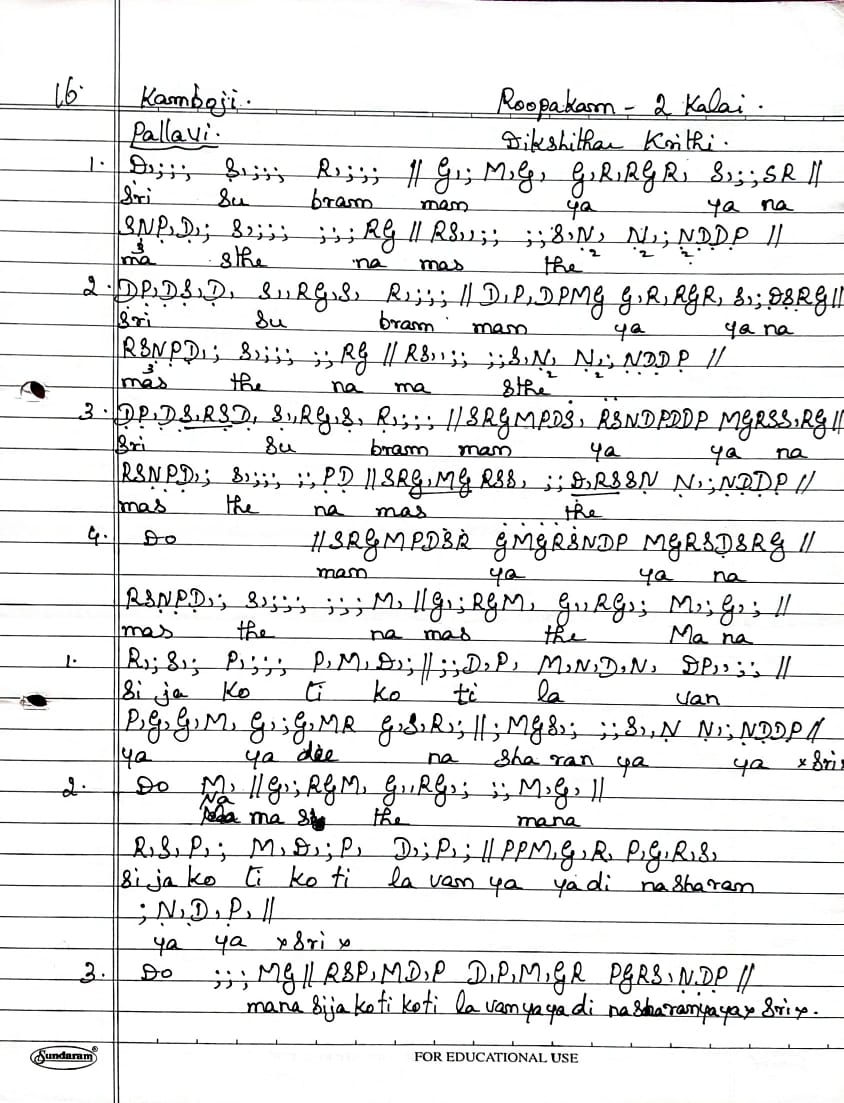 16. Kamboji. Roopakam - 2 Kalai.
Pallavi. Dikshithar Krithi.
1. D,;;; S,;;; R,;;; // G,; M,G, G,R,RGR, S,;;SR //
Sri Su bram mam ya ya na
SNP,D,; S,;;; ;;;RG // RS,,;; ;;S,N, N,; NDDP //
3 2 2 2
ma sthe na mas the
2. DP,DS,D, S,,RG,S, R,;;; // D,P,DPMG G,R,RGR, S,;DSRG //
Sri Su bram mam ya ya na
RSNPD,; S,;;; ;;,RG // RS,,;; ;;S,N, N,; NDDP //
3 2 2
mas the na ma sthe
3. DP,DS,RSD, S,,RG,S, R,;;; // SRGMPDS, RSNDPDDP MGRSS,RG //
Sri Su bram mam ya ya na
RSNPD,; S,;;; ;;,PD // SRG,MG RSS, ;;D,RSSN N,;NDDP //
mas the na mas the
4. Do // SRGMPDSR GMGRSNDP MGRSDSRG //
mam ya ya na
RSNPD,; S,;;; ;;;M, // G,;RGM, G,,RG,; M,;G,; //
mas the na mas the Ma na
1. R,;S,; P,;;; P,M,D,; // ;;D,P, M,N,D,N, DP,,;; //
Si ja Ko ti ko ti la van
P,G,G,M, G,;G,MR G,S,R,; // ;MGS,; ;;S,,N N,;NDDP //
ya ya dee na sha ran ya ya x Sri x
2. Do M, // G,;RGM, G,,RG,; ;;M,G, //
Na ma s the mana
R,S,P,; M,D,;P, D,;P,; // PPM,G,R, P,G,R,S,
Si ja ko ti ko ti la vam ya ya di na sharam
;N,D,P, //
ya ya x Sri x
3. Do ;;;MG // RSP,MD,P D,P,M,GR PGRS,N,DP //
mana Sija koti koti la vam ya ya di na sharanya ya x Sri x.
Sundaram®
FOR EDUCATIONAL USE